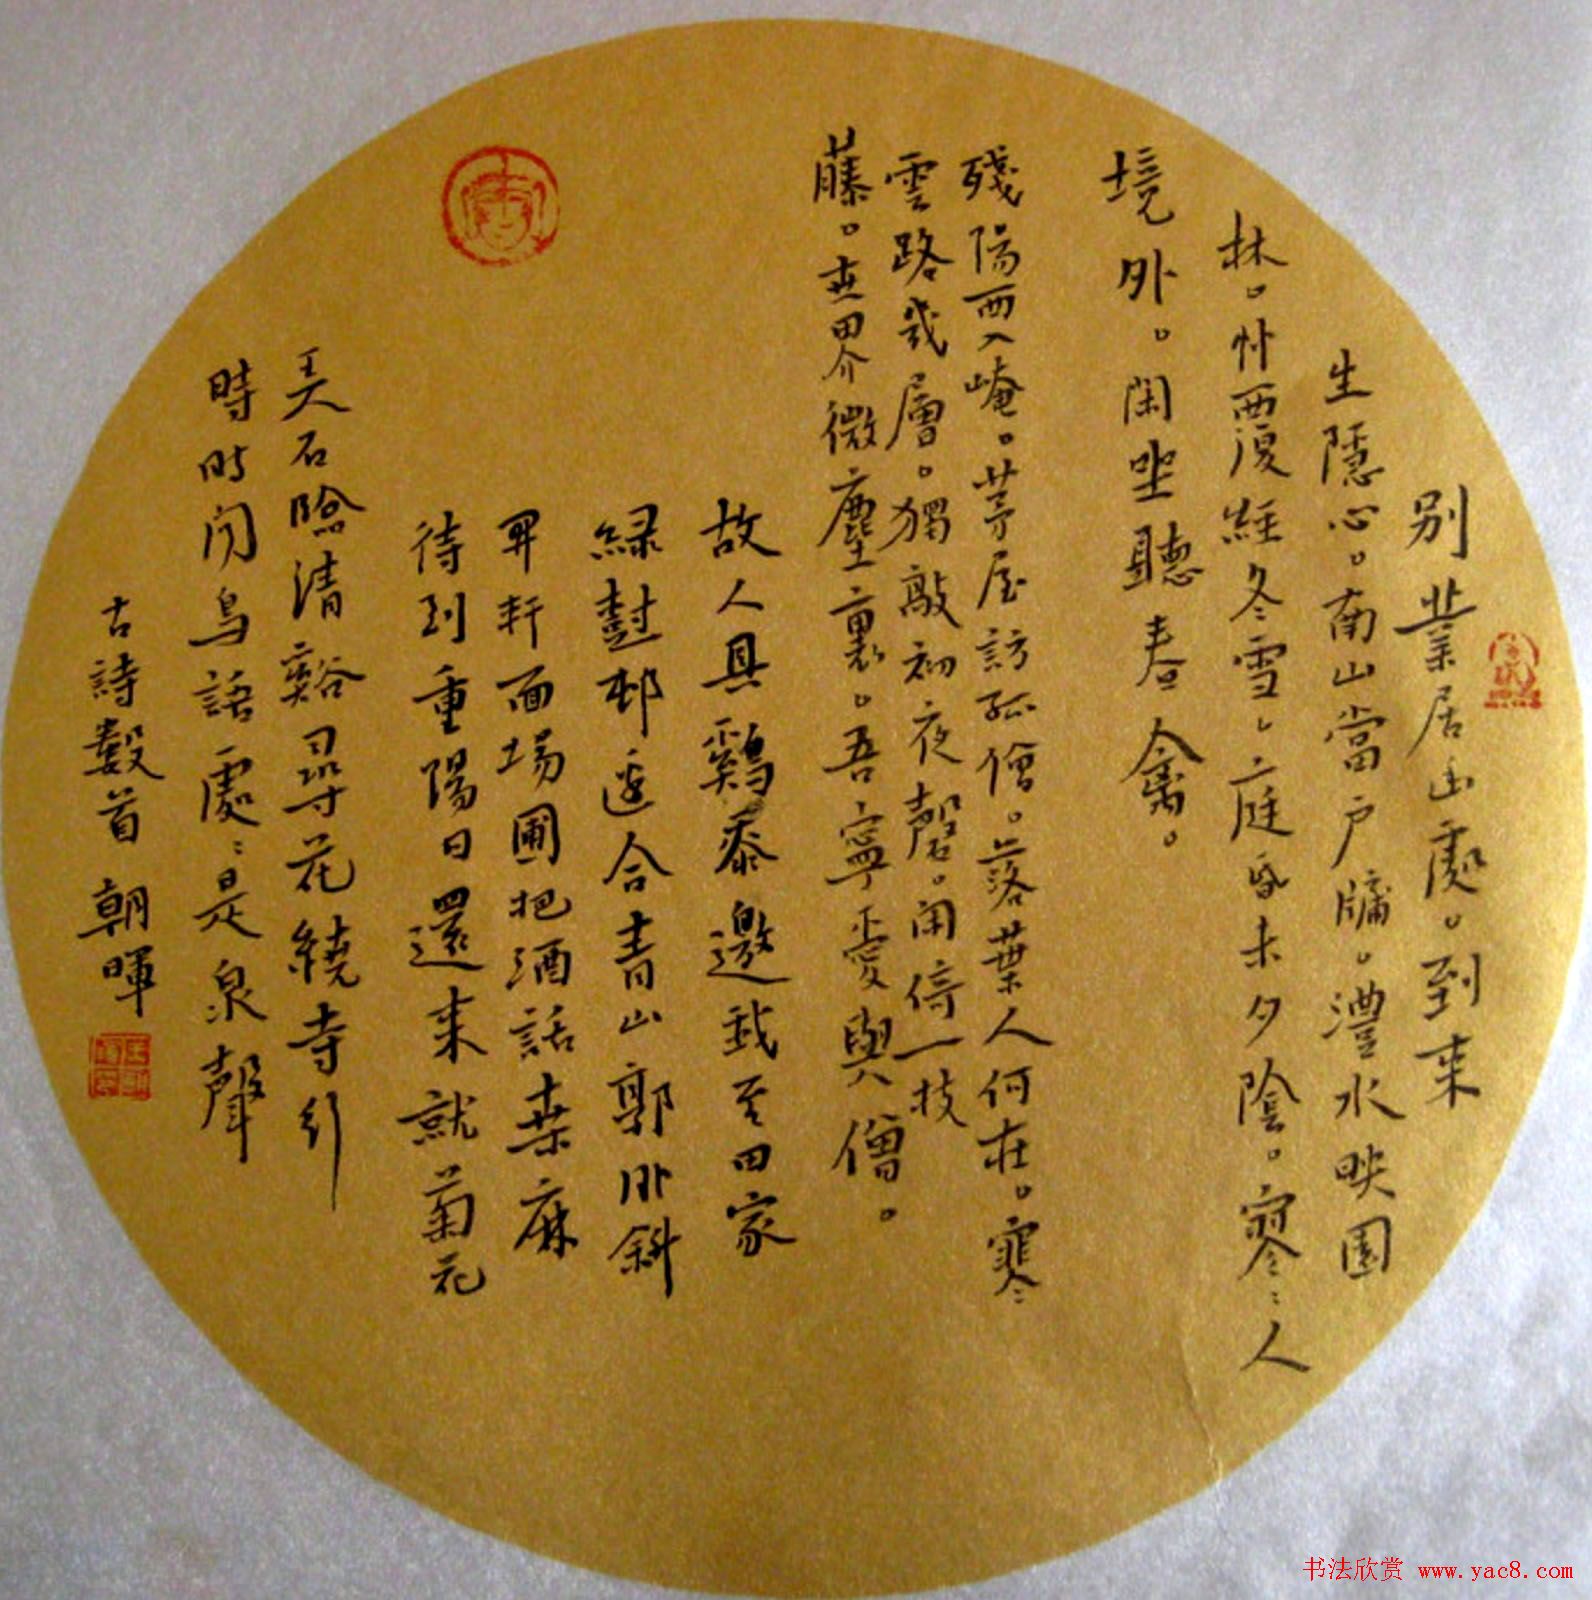 别業居幽處。到来
生隱心。南山當户牖。灃水映園
林。竹覆經冬雪。庭昏未夕陰。寥〻人
境外。閑坐聽春禽。
殘陽西入崦。茅屋訪孤僧。落葉人何在。寒
雲路幾層。獨敲初夜磬。閑倚一枝
藤。世界微塵裏。吾寧愛與僧。
故人具鷄黍邀我至田家
緑樹邨邊合青山郭外斜
開軒面場圃把酒話桑麻
待到重陽日還来就菊花
弄石臨清谿尋花繞寺行
時時聞鳥語處〻是泉聲
古詩數首 朝暉
书法欣赏 www.yac8.com